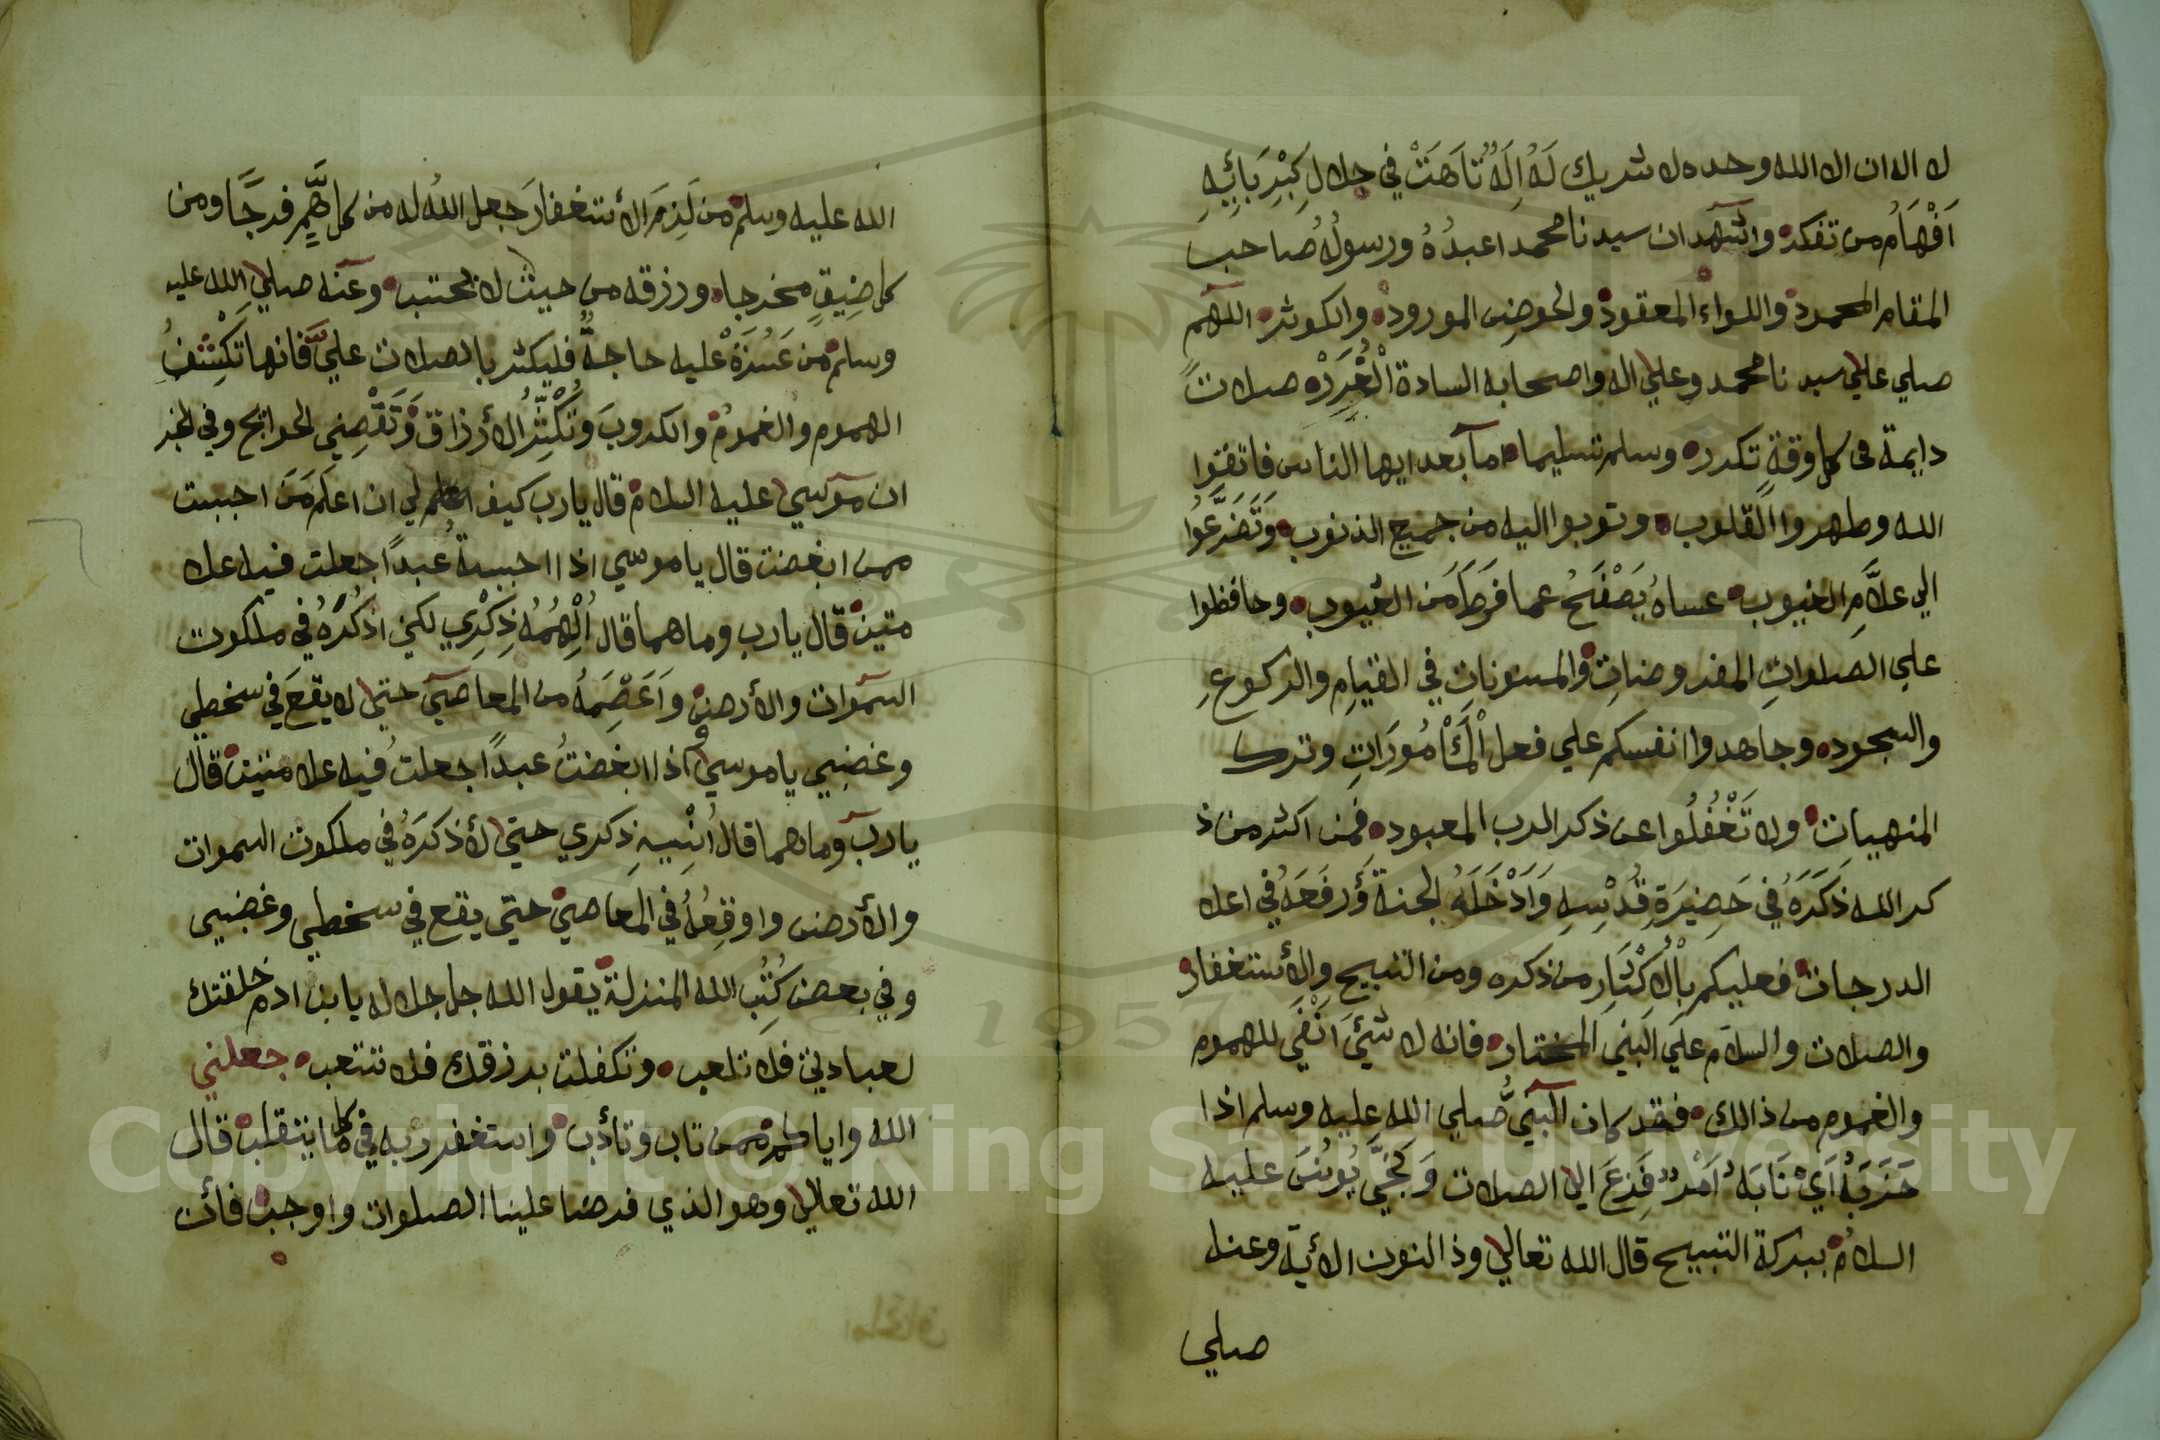 لا اله ان الا الله وحده لا شريك لَهُ اِلَهٌ تَاهَتْ في جلال كِبْرِيَائِهِ
اَفْهَامُ من تفكر واشهد ان سيدنا محمد اعبدُهُ ورسولُهُ صاحب
المقام المحمود واللواء المعقود والحوض المورود والكوثر اللهم
صلي علي سيد نا محمد وعلي اله واصحابه السادة الْغُرَرْ صلات
دايمة في كل وقةٍ تكرر وسلم تسليما اما بعد ايها الناس فاتقوا
الله وطهروا القلوب وتوبوا اليه من جميع الذنوب وَتَضَرَّعُوا
الي علَّامِ الغيوب عساهُ يَصْفَحُ عما فَرَطَ مَن العُيوب وحافظوا
علي الصلواتِ المفروضاتِ والمسنوناتِ في القيامِ والركوعِ
والسجود وجاهدوا انفسكم علي فعل الْمَأْمُورَاتِ وترك
المنهيات ولا تَغْفُلُوا عن ذكر الرب المعبود فمن اكثر من ذ
كر الله ذَكَرَهُ في حَضِيرَةِ قُدْسِهِ وَاَدْخَلَهُ الجنةَ وَرفَعَهُ في اعلا
الدرجات فعليكم بِالْاِكْثَارِ من ذكره ومن التسبيح والأستغفار
والصلات والسلام علي النبي المختار فانه لا شئ اَنْفَي للهموم
والغموم من ذالك فقد كان النبي صلي الله عليه وسلم اذا
حَزَبَهُ اَيْ نَابَهُ اَمْرٌ فَزِعَ الي الصلات وَنجّيَ يُونُسَ عليه
السلام ببركة التسبيح قال الله تعالي وذا النون الأية وعنه
صلي
الله عليه وسلم من لَزِمَ الأستغفارَ جعل اللهُ له من كل هَمٍّ فرجًا ومن
كل ضِيقٍ مخرجا ورزقه من حيث لا يحتسب وعنه صلي الله عليه
وسلم من عَسُرَةْ عليه حاجةٌ فليكثر بالصلات عليَّ فانها تَكْشِفُ
الهموم والغموم والكروبَ وتُكْثِرُ الأرزاق وَتَقْضِي الحوايج وفي الخبر
ان موسي عليه السلام قال يارب كيف لي ان اعلم مَن احببت
ممن ابغضت قال يا موسي اذا احببتهُ عبدًا جعلت فيه علا
متين قال يارب وما هما قال اُلْهِمُهُ ذِكْرِي لكي اذكُرَهُ في ملكوت
السموات والأرض وَاَعْصِمَهُ من المعاصي حتي لا يقعَ في سخطي
وغضبي يا موسي واذا ابغضتُ عبدًا جعلتُ فيه علا متين قال
يارب وما هما قال اُنْسِيهِ ذِكري حتي لأذكرَهُ في ملكوت السموات
والأرض واوقِعُهُ في المعاصي حتي يقع في سخطي وغضبي
وفي بعض كُتُب الله المنزلة يقول الله جل جلاله يا بن ادم خلقتك
لعبادتي فلا تلعب وتكفلت برزقك فلا تتعب جعلني
الله واياكم ممن تاب وتأدب واستغفر ربه في كل ما يتقلب قال
الله تعالي وهو الذي فرضا علينا الصلوات واوجب فأن